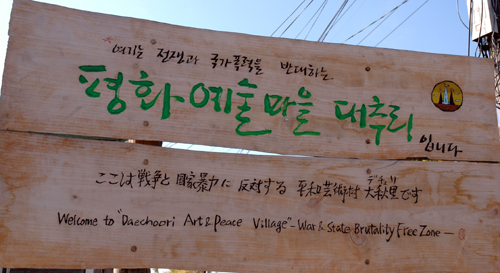 여기는 전쟁과 국가폭력을 반대하는
평화예술마을 대추리 입니다
ここは戦争と国家暴力に反対する 平和芸術村 大秋里です
デチュリ
Welcome to "Daechoori Art & Peace Village" - War & State Brutality Free Zone -